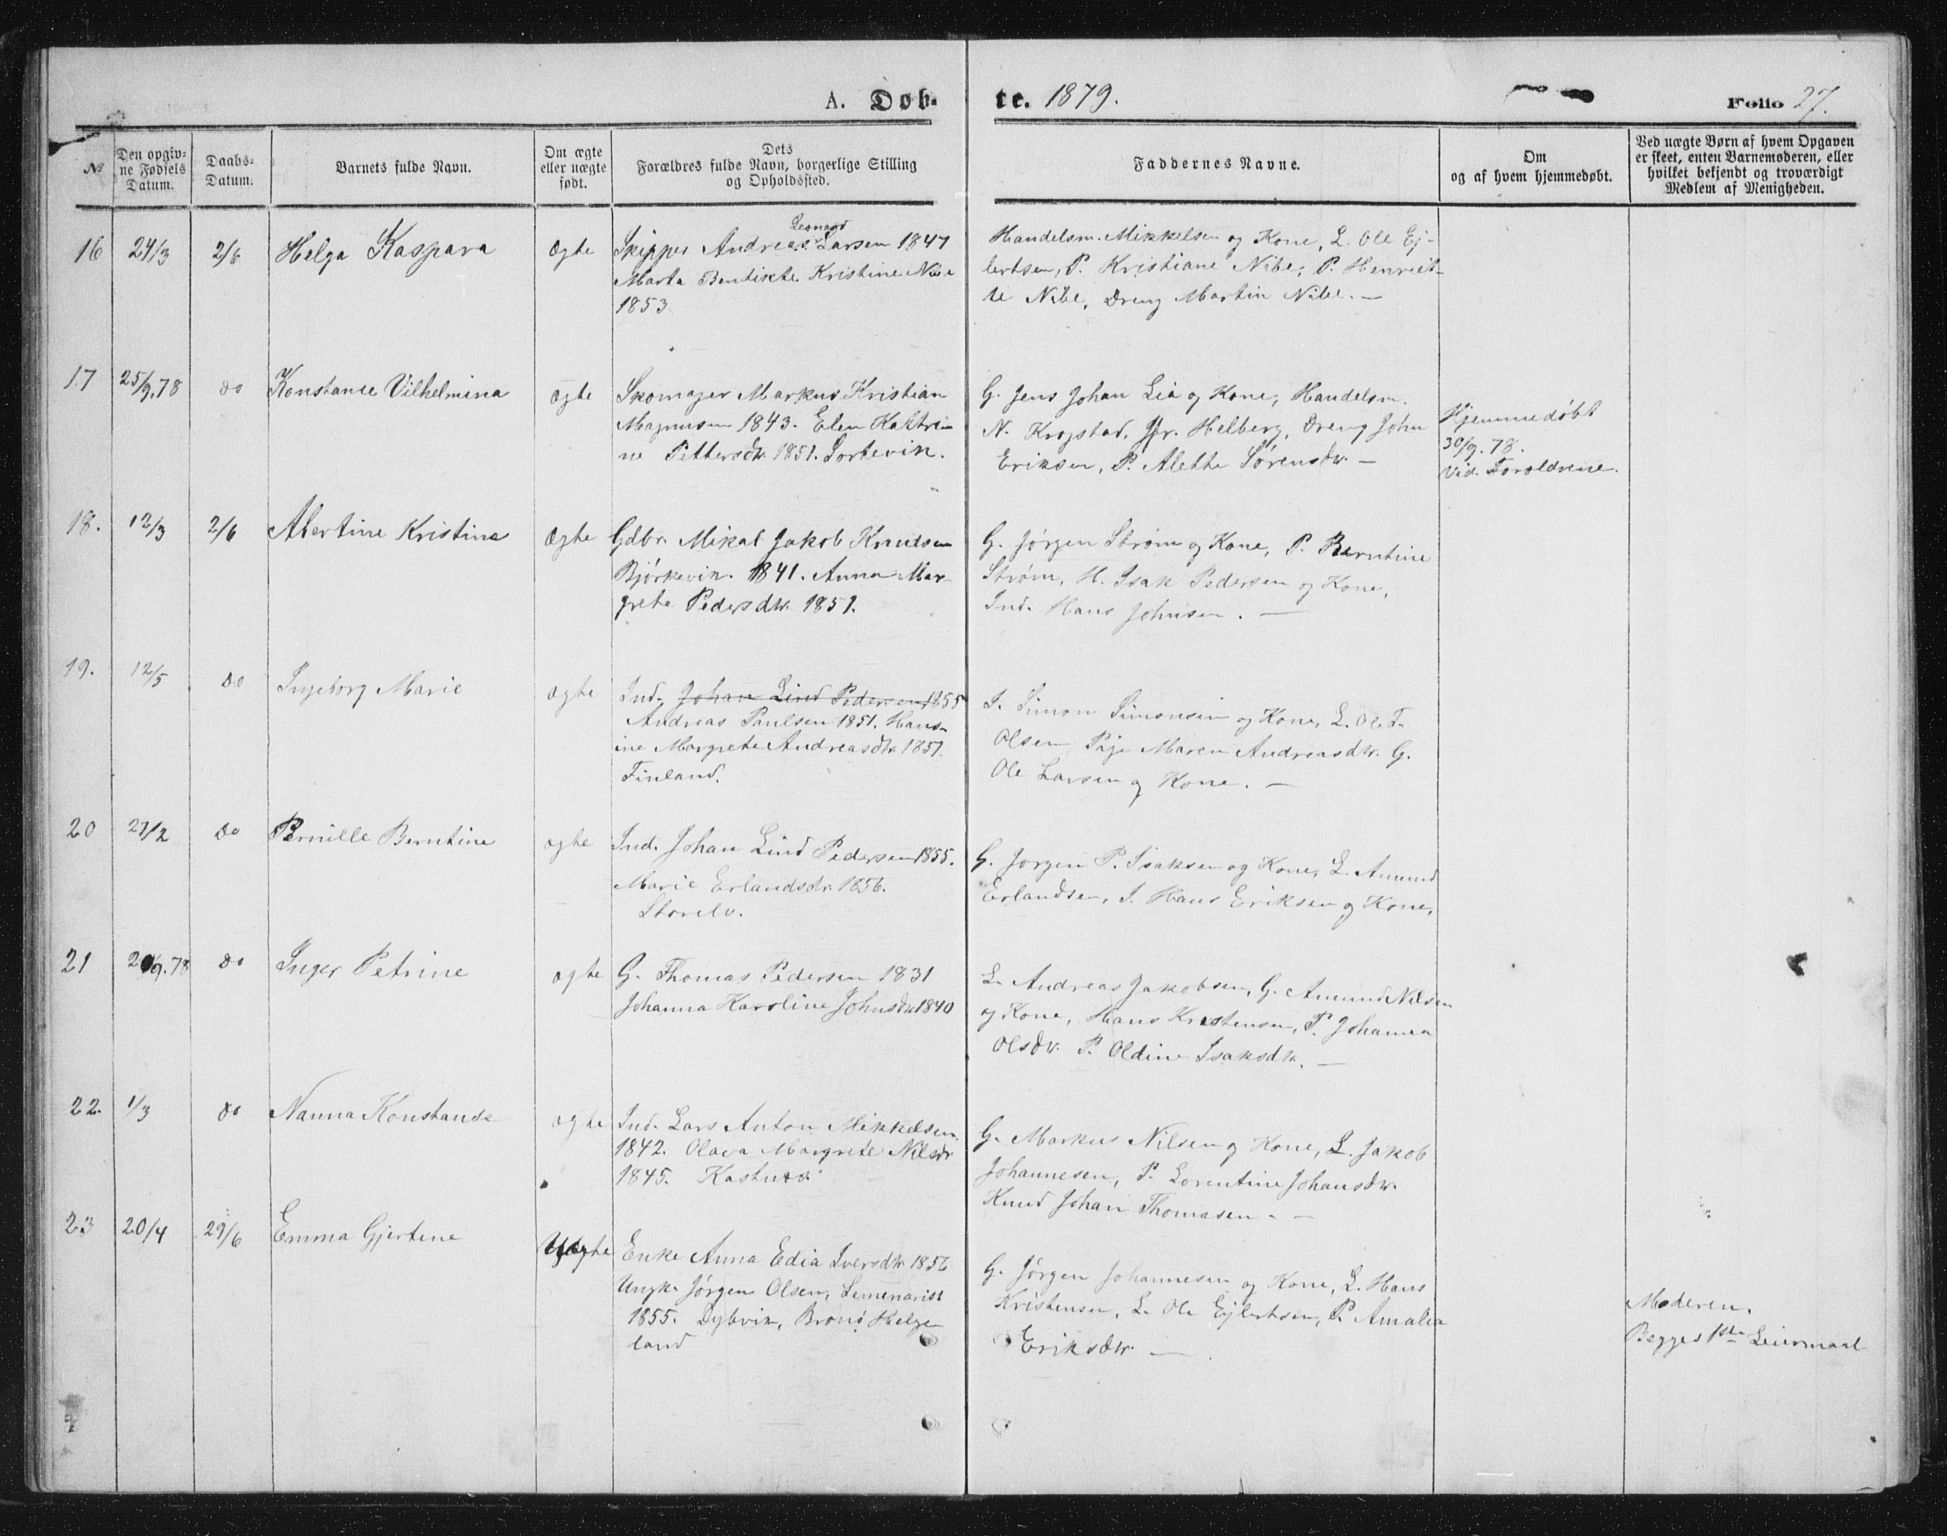 A. Døb-
te. 1879.
Folio 27.
No
Den opgiv-
ne Fødsels
Datum.
Daabs-
Datum.
Barnets fulde Navn.
Om ægte
eller uægte
født.
Dets
Forældres fulde Navn, borgerlige Stilling
og Opholdssted.
Faddernes Navne.
Om
og af hvem hjemmedøbt.
Ved uægte Børn af hvem Opgaven
er skeet, enten Barnemoderen, eller
hvilket bekjendt og troværdigt
Medlem af Menigheden.
16 24/3 2/6 Helga Kaspara ægte
Leonard
Skipper Andreas Larsen 1847
Marta Bentikte Kristine Nibe
1853
Handelsm. Mikkelsen og Kone, L. Ole Ej-
lertsen, P. Kristiane Nibe, P. Henriet-
te Nibe, Dreng Martin Nibe. —
17 25/9.78 do Konstance Vilhelmina ægte
Skomager Markus Kristian
Magnusen 1843. Elen Kathri-
ne Pettersdtr. 1851. Sortevik.
G. Jens Johan Lia og Kone, Handelsm.
N. Krogstad, Fr. Helberg, Dreng John
Eriksen, P. Alette Sørensdtr. —
Hjemmedøbt
30/9.78.
Vid. Foroldrene.
18. 12/3 2/6 Albertine Kristine ægte
Gdbr. Mikal Jakob Knutsen
Bjørkevik. 1841. Anna Mar-
grete Pedersdtr. 1851.
G. Jørgen Strøm og Kone, P. Berntine
Strøm, H. Isak Pedersen og Kone,
Ind. Hans Johnsen. —
19. 12/5 do Ingeborg Marie ægte
Ind. Johan Lind Pedersen 1855
Andreas Paulsen 1851. Hans-
ine Margrete Andreasdtr. 1851.
Finland.
I. Simon Simonsen og Kone, L. Ole T.
Olsen, Pige Maren Andreasdtr. G.
Ole Larsen og Kone. —
20 27/2 do Pernille Berntine ægte
Ind. Johan Lind Pedersen 1855.
Marie Erlandsdtr. 1856.
Storelv.
G. Jorgen P. Isaksen og Kone, L. Amund
Erlandsen, I. Hans Eriksen og Kone,
21 /9.78 do Inger Petrine ægte
G. Thomas Pedersen 1831
Johanna Karoline Johnsdtr 1840
L. Andreas Jakobsen, G. Amund Nilsen
og Kone, Hans Kristensen, P. Johanna
Olsdtr. P. Oldine Isaksdtr. —
22. 1/3 do Nanna Konstanse ægte
Ind. Lars Anton Mikkelsen
1842. Olava Margrete Nilsdtr
1845.
G. Markus Nilsen og Kone, L. Jakob
Johannesen, P. Lorentine Johansdtr.
Knud Johan Thomasen. —
23 20/4 29/6 Emma Gjertine Uægte
Enke Anna Edia Iversdtr. 1856
Ungk. Jørgen Olsen, Semenarist
1855. Dybvik, Brønø Helge
land
G. Jørgen Johannesen og Kone, L. Hans
Kristensen, L. Ole Ejlertsen, P. Amalia
Eriksdtr. —
Moderen.
Begges 1ste Leiermaal